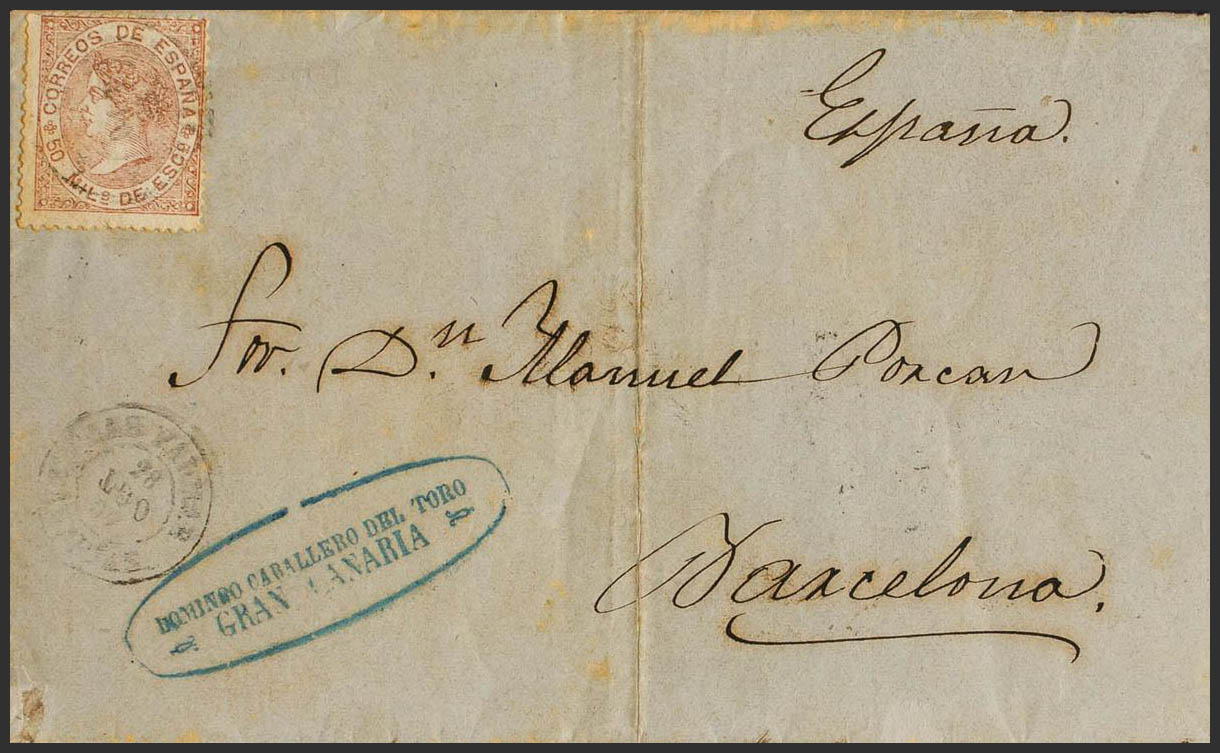 CORREOS DE ESPAÑA
50 MILS DE ESCO
España.
Sor. Dn. Manuel Porcar
Barcelona.
28
DOMINGO CABALLERO DEL TORO
GRAN CANARIA